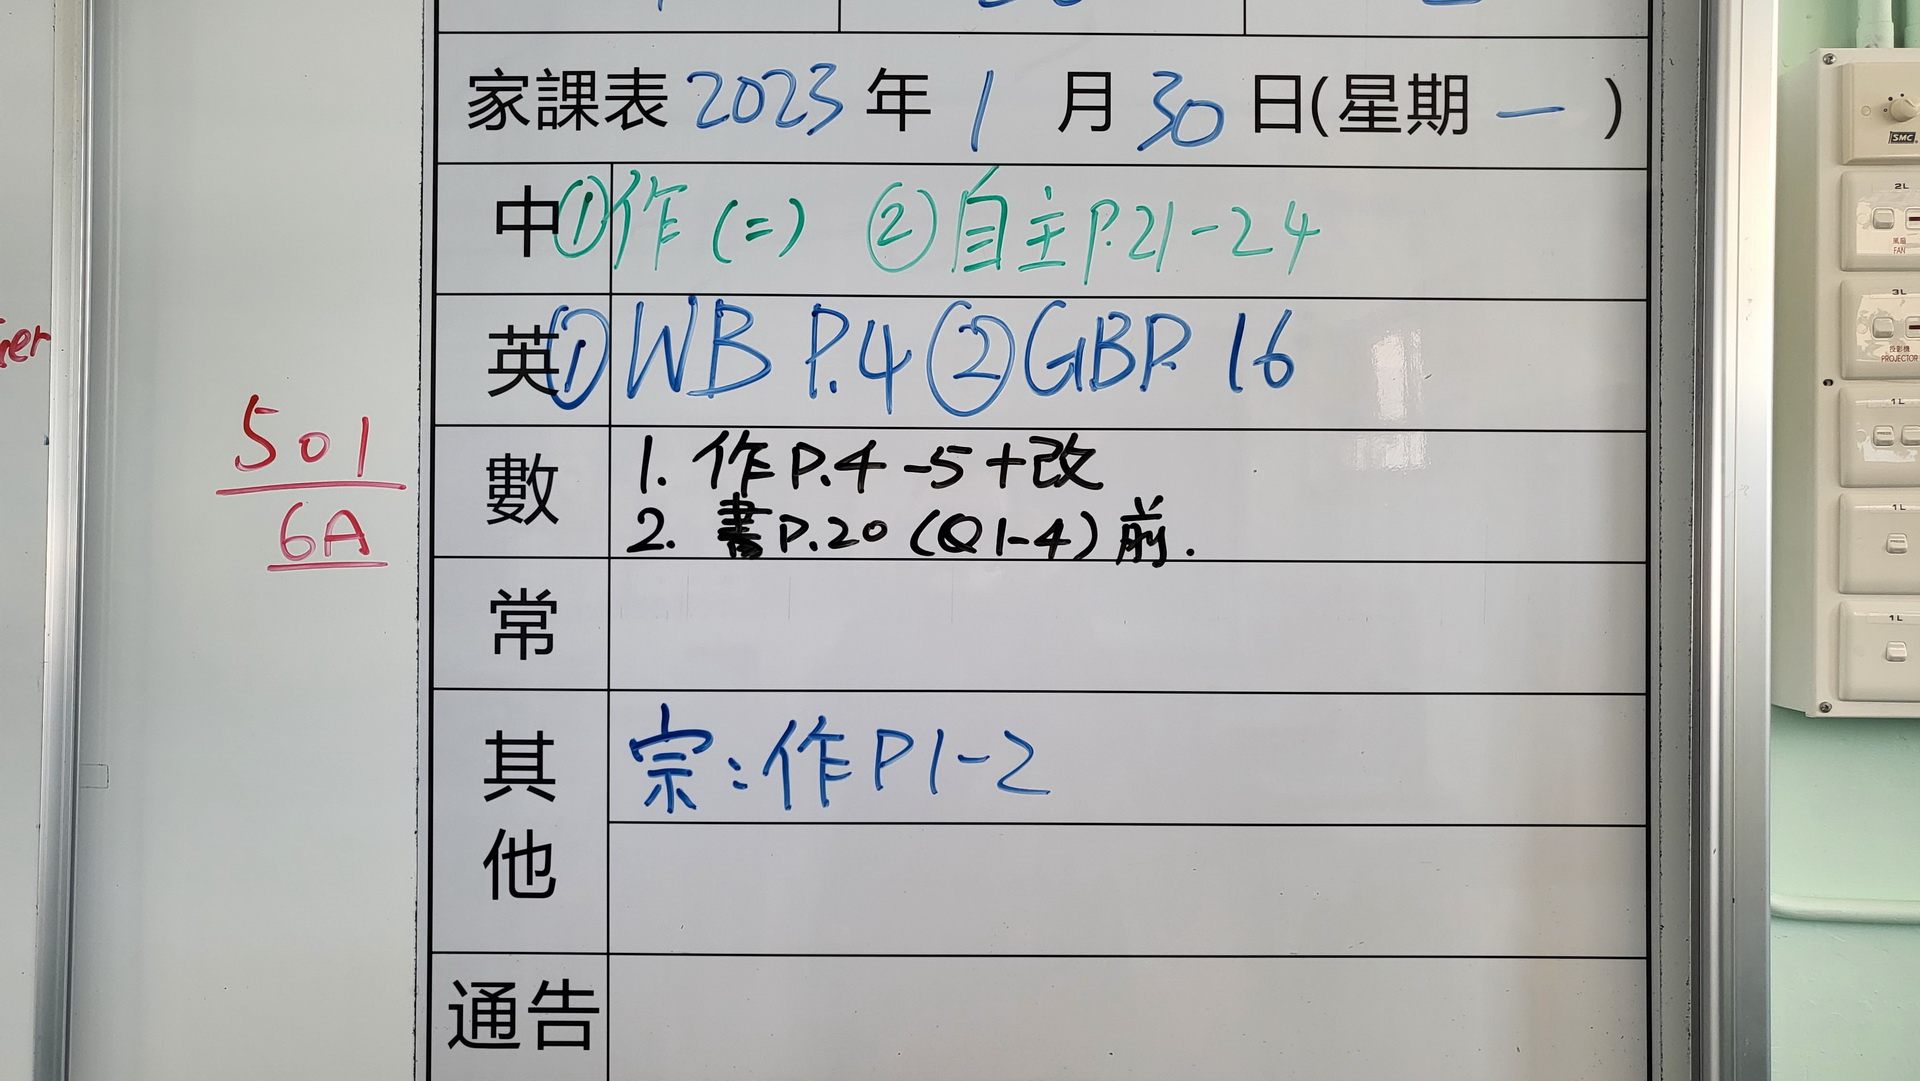 家課表 2023 年 1 月 30 日(星期 一 )
中 ①作(二) ②自主P.21-24
英 ①WB P.4 ②GB P. 16
數 1. 作P.4-5+改
2. 書P.20 (Q1-4) 前.
常
其他 宗:作P1-2
通告
501
6A
SMC
2L
風扇
FAN
3L
投影機
PROJECTOR
1L
1L
1L